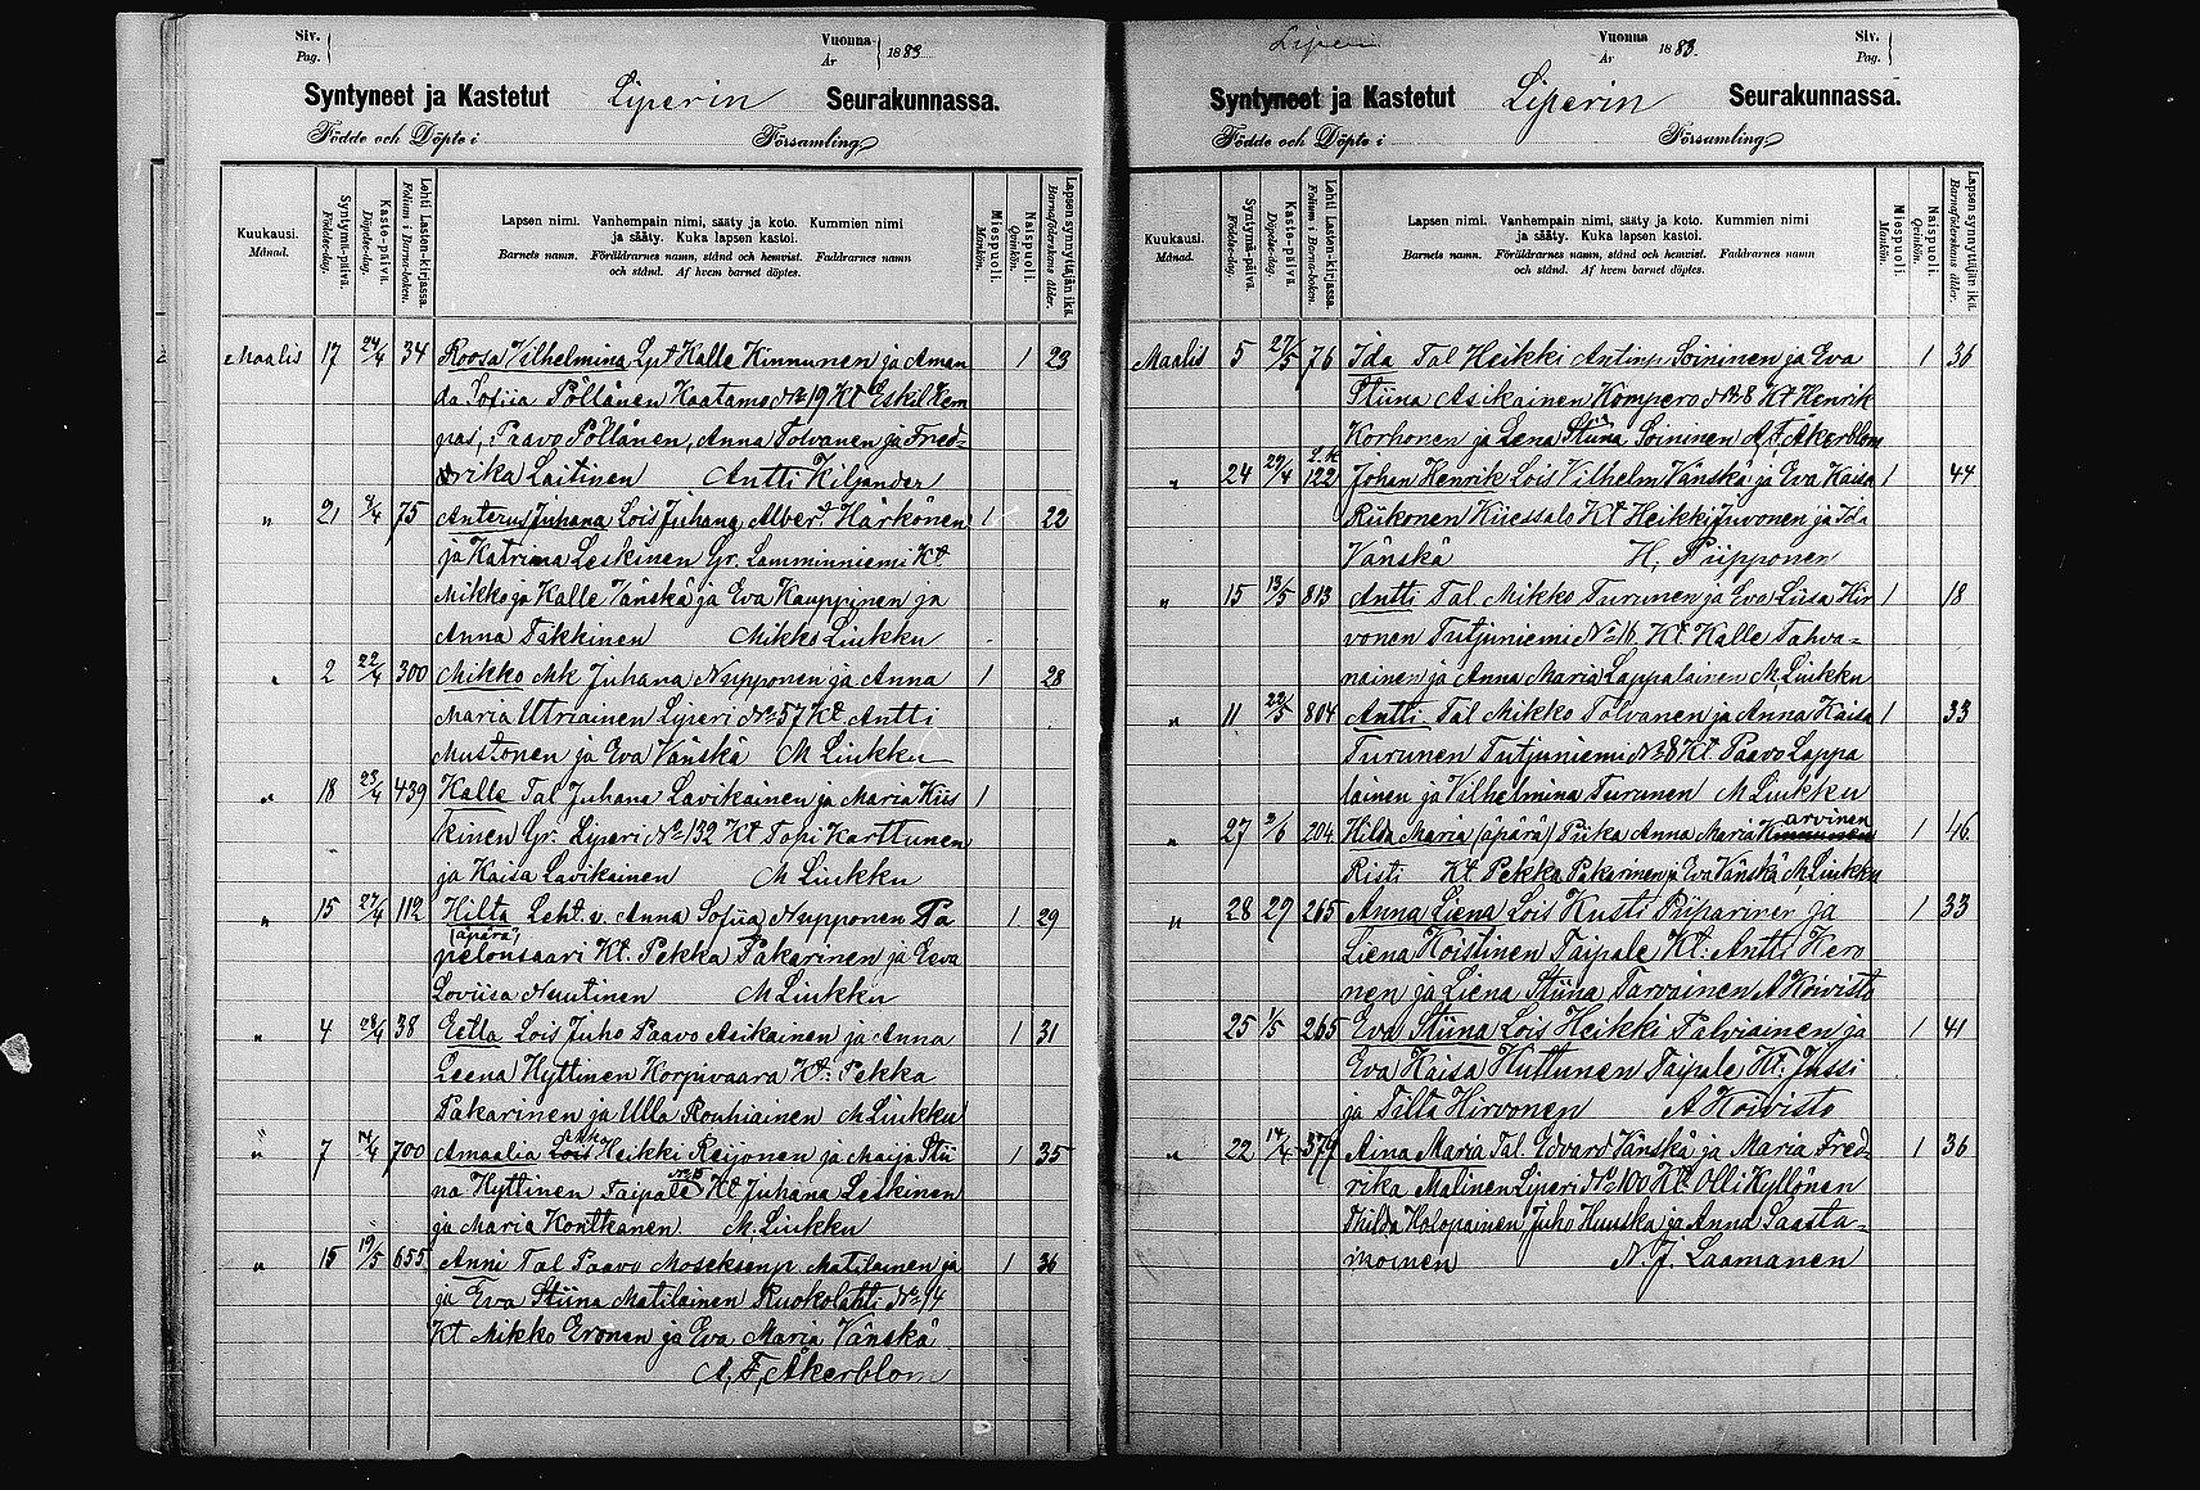 Siv.
Pag.
Vuonna
År
1883
Syntyneet ja Kastetut Liperin Seurakunnassa.
Födde och Döpte i Församling
Kuukausi.
Månad.
Syntymä-päivä.
Födelse-dag.
Kaste-päivä.
Döpelse-dag.
Lehti Lasten-kirjassa.
Folium i Barna-boken.
Lapsen nimi. Vanhempain nimi, sääty ja koto. Kummien nimi
ja sääty. Kuka lapsen kastoi.
Barnets namn. Föräldrarnes namn, stånd och hemvist. Faddrarnes namn
och stånd. Af hvem barnet döptes.
Miespuoli.
Mankön.
Naispuoli.
Qvinkön.
Lapsen synnyttäjän ikä.
Barnaföderskans ålder.
Maalis 17 24/4 34 Roosa Vilhelmina Lpt Kalle Kinnunen ja Aman 1 23
da Sofiia Pöllänen Kaatamo No 19 Kt Eskil Kem
pas, Paavo Pöllänen, Anna Tolvanen ja Fred=
rika Laitinen Antti Kiljander
" 21 /4 75 Anterus Juhana Lois Juhana Albert Härkönen 1 22
ja Katrina Leskinen Gr. Lamminniemi Kt
Mikko ja Kalle Vänskä ja Eva Kauppinen ja
Anna Takkinen Mikko Liukku
" 2 22/4 300 Mikko Mk Juhana Nupponen ja Anna 1 28
Maria Utriainen Liperi No 57 Kt. Antti
Mustonen ja Eva Vänskä M Liukku
" 18 23/4 439 Kalle Tal Juhana Lavikainen ja Maria Kiis 1
kinen Gr. Liperi No 132 Kt Topi Karttunen
ja Kaisa Lavikainen M Liukku
" 15 27/4 112 Hilta Leht. v. Anna Sofiia Nupponen Pa 1 29
(äpärä)
pelonsaari Kt. Pekka Pakarinen ja Eeva
Loviisa Nuutinen M Liukku
" 4 28/4 38 Eetla Lois Juho Paavo Asikainen ja Anna 1 31
Leena Hyttinen Korpivaara Kt: Pekka
Pakarinen ja Ulla Rouhiainen M Liukku
" 7 14/4 700 Amaalia Lois Heikki Reijonen ja Maija Stii 1 35
na Hyttinen Taipale Kt Juhana Leskinen
ja Maria Kontkanen. M. Liukku
" 15 19/5 655 Anni Tal Paavo Moseksenp. Matilainen ja 1 36
ja Eva Stiina Matilainen Ruokolahti No 14
Kt Mikko Eronen ja Eva Maria Vänskä
A, F, Åkerblom
Liperi
Vuonna
År
1883.
Siv.
Pag.
Syntyneet ja Kastetut Liperin Seurakunnassa.
Födde och Döpte i Församling
Kuukausi.
Månad.
Syntymä-päivä.
Födelse-dag.
Kaste-päivä.
Döpelse-dag.
Lehti Lasten-kirjassa.
Folium i Barna-boken.
Lapsen nimi. Vanhempain nimi, sääty ja koto. Kummien nimi
ja sääty. Kuka lapsen kastoi.
Barnets namn. Föräldrarnes namn, stånd och hemvist. Faddrarnes namn
och stånd. Af hvem barnet döptes.
Miespuoli.
Mankön.
Naispuoli.
Qvinkön.
Lapsen synnyttäjän ikä.
Barnaföderskans ålder.
Maalis 5 27/5 76 Ida Tal Heikki Antinp. Soininen ja Eva 1 36
Stiina Asikainen Kompero No 8 Kt Henrik
Korhonen ja Lena Stiina Soininen A, F, Åkerblom
" 24 29/4 122 Johan Henrik Lois Vilhelm Vänskä ja Eva Kaisa 1 44
Riikonen Kiiessalo Kt Heikki Juvonen ja Ida
Vänskä H, Piipponen
" 15 13/5 813 Antti Tal. Mikko Turunen ja Eva Liisa Hir 1 18
vonen Tutjuniemi No 16 Kt. Kalle Tahva=
nainen ja Anna Maria Lappalainen M, Liukku
" 11 22/5 804 Antti Tal Mikko Tolvanen ja Anna Kaisa 1 33
Turunen Tutjuniemi No 8 Kt. Paavo Lappa
lainen ja Vilhelmina Turunen M Liukku
arvinen
" 27 3/6 204 Hilda Maria (äpärä) Piika Anna Maria K 1 46
Risti Kt. Pekka Pakarinen ja Eva Vänskä M, Liukku
" 28 29 265 Anna Liena Lois Kusti Piiparinen ja 1 33
Liena Koistinen Taipale Kt: Antti Kero
nen ja Liena Stiina Tarvainen A Koivisto
25 1/5 265 Eva Stiina Lois Heikki Palviainen ja 1 41
Eva Kaisa Huttunen Taipale Kt. Jussi
ja Tilta Hirvonen A Koivisto
" 22 14/4 377 Aina Maria Tal. Edvard Vänskä ja Maria Fred= 1 36
rika Malinen Liperi No 100 Kt. Olli Kyllönen
Thilda Holopainen, Juho Huuska ja Anna Saasta=
moinen N. J. Laamanen